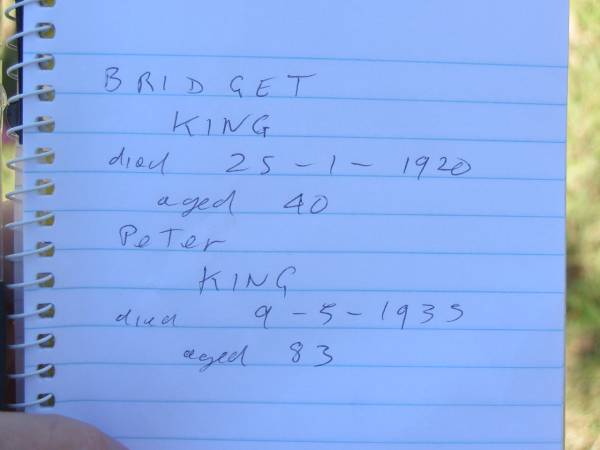 BRIDGET
KING
died 25-1-1920
aged 40
Peter
KING
died 9-5-1935
aged 83